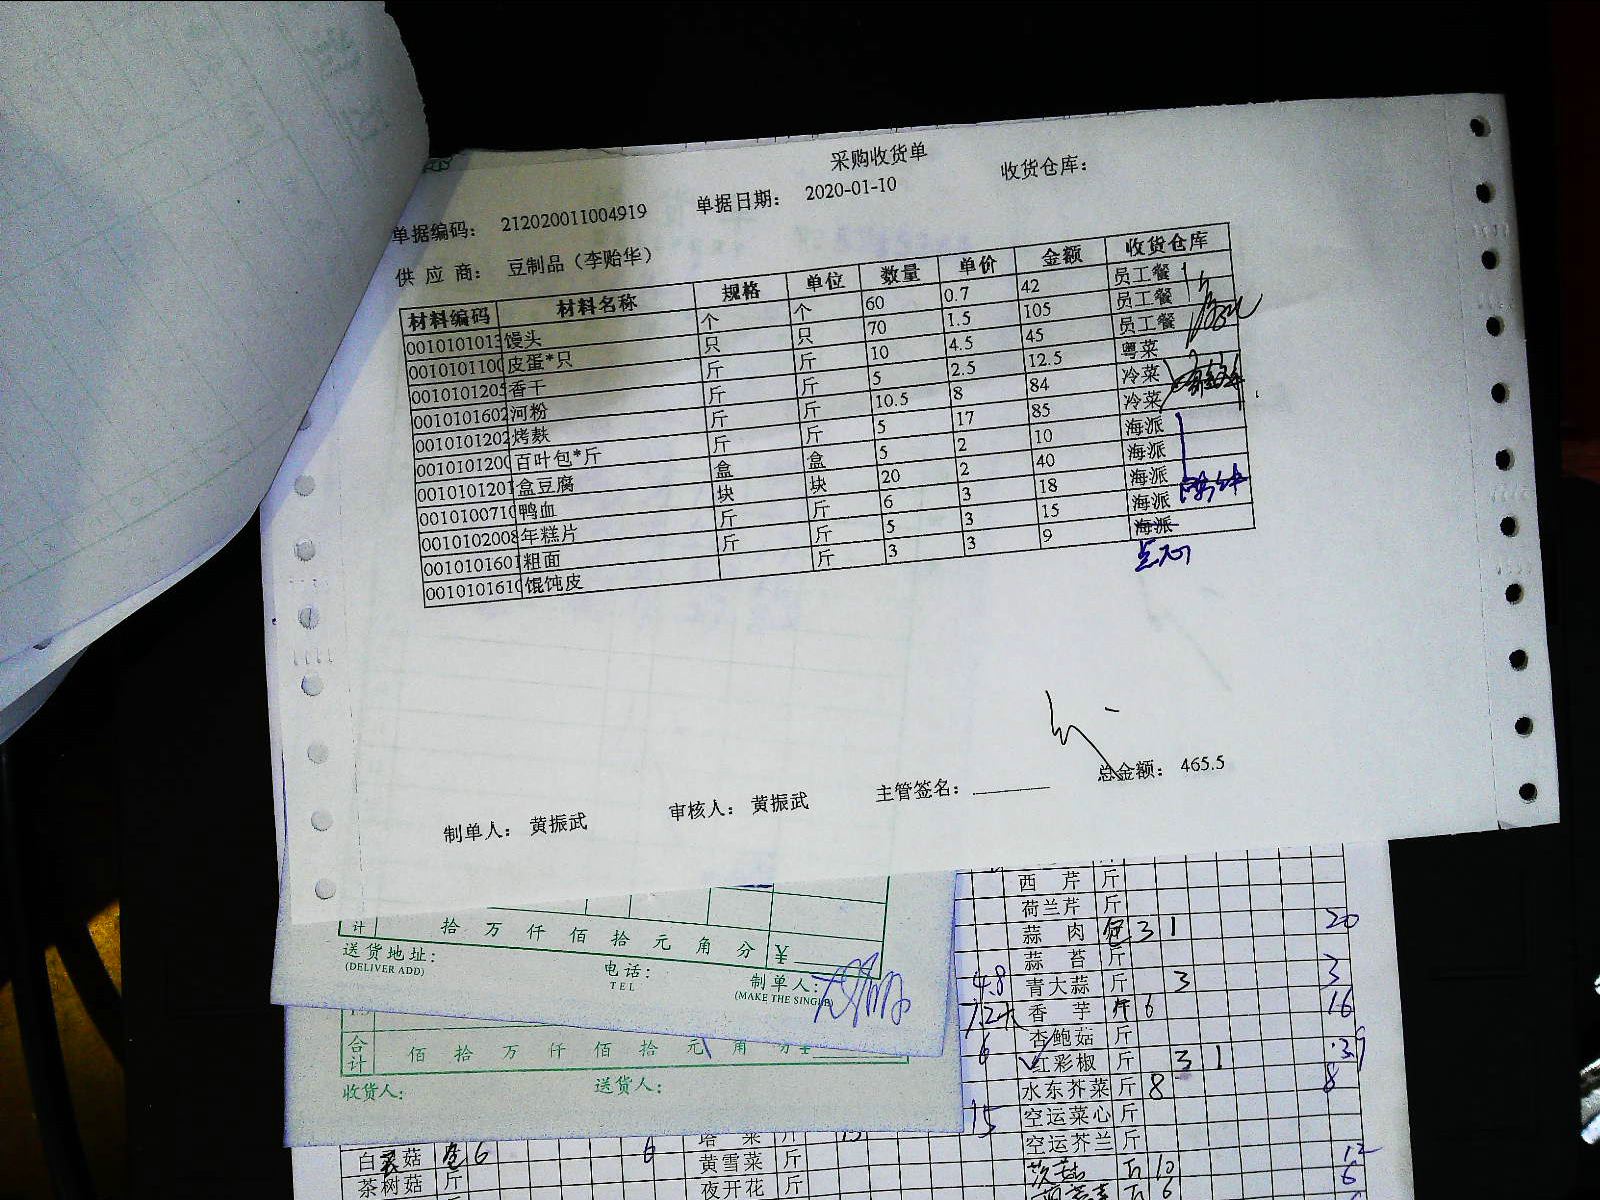 采购收货单
单据编码： 212020011004919 单据日期： 2020-01-10 收货仓库：
供 应 商： 豆制品（李贻华）
材料编码 材料名称 规格 单位 数量 单价 金额 收货仓库
0010101013 馒头 个 个 60 0.7 42 员工餐
0010101100 皮蛋*只 只 只 70 1.5 105 员工餐
0010101205 香干 斤 斤 10 4.5 45 员工餐
0010101602 河粉 斤 斤 5 2.5 12.5 粤菜
0010101202 烤麸 斤 斤 10.5 8 84 冷菜
0010101200 百叶包*斤 斤 斤 5 17 85 冷菜
0010101201 盒豆腐 盒 盒 5 2 10 海派
0010100710 鸭血 块 块 20 2 40 海派
0010102008 年糕片 斤 斤 6 3 18 海派
0010101601 粗面 斤 斤 5 3 15 海派
0010101610 馄饨皮 斤 3 3 9 海派
点心
总金额： 465.5
制单人： 黄振武 审核人： 黄振武 主管签名：
计 拾 万 仟 佰 拾 元 角 分 ¥
送货地址：
(DELIVER ADD)
电话：
TEL
制单人：
(MAKE THE SINGLE)
合计 佰 拾 万 仟 佰 拾 元 角 分
收货人： 送货人：
西 芹 斤
荷兰芹 斤
蒜 肉 3 1 20
蒜 苔 斤
4.8 青大蒜 斤 3 3
香 芋 斤 6 16
6 杏鲍菇 斤
红彩椒 斤 3 1
水东芥菜 斤 8 8
15 空运菜心 斤
空运芥兰 斤
塔 菜 斤 15
白 菇 6 6 黄雪菜 斤 10 12
茶树菇 斤 夜开花 斤 6 6